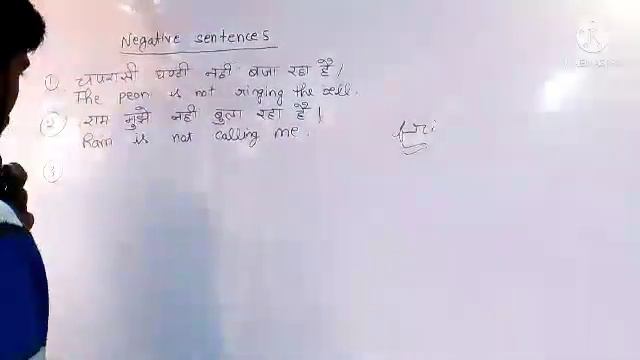 Negative sentences
① चपरासी घण्टी नहीं बजा रहा है।
The peon is not ringing the bell.
② राम मुझे नहीं बुला रहा है।
Ram is not calling me.
③